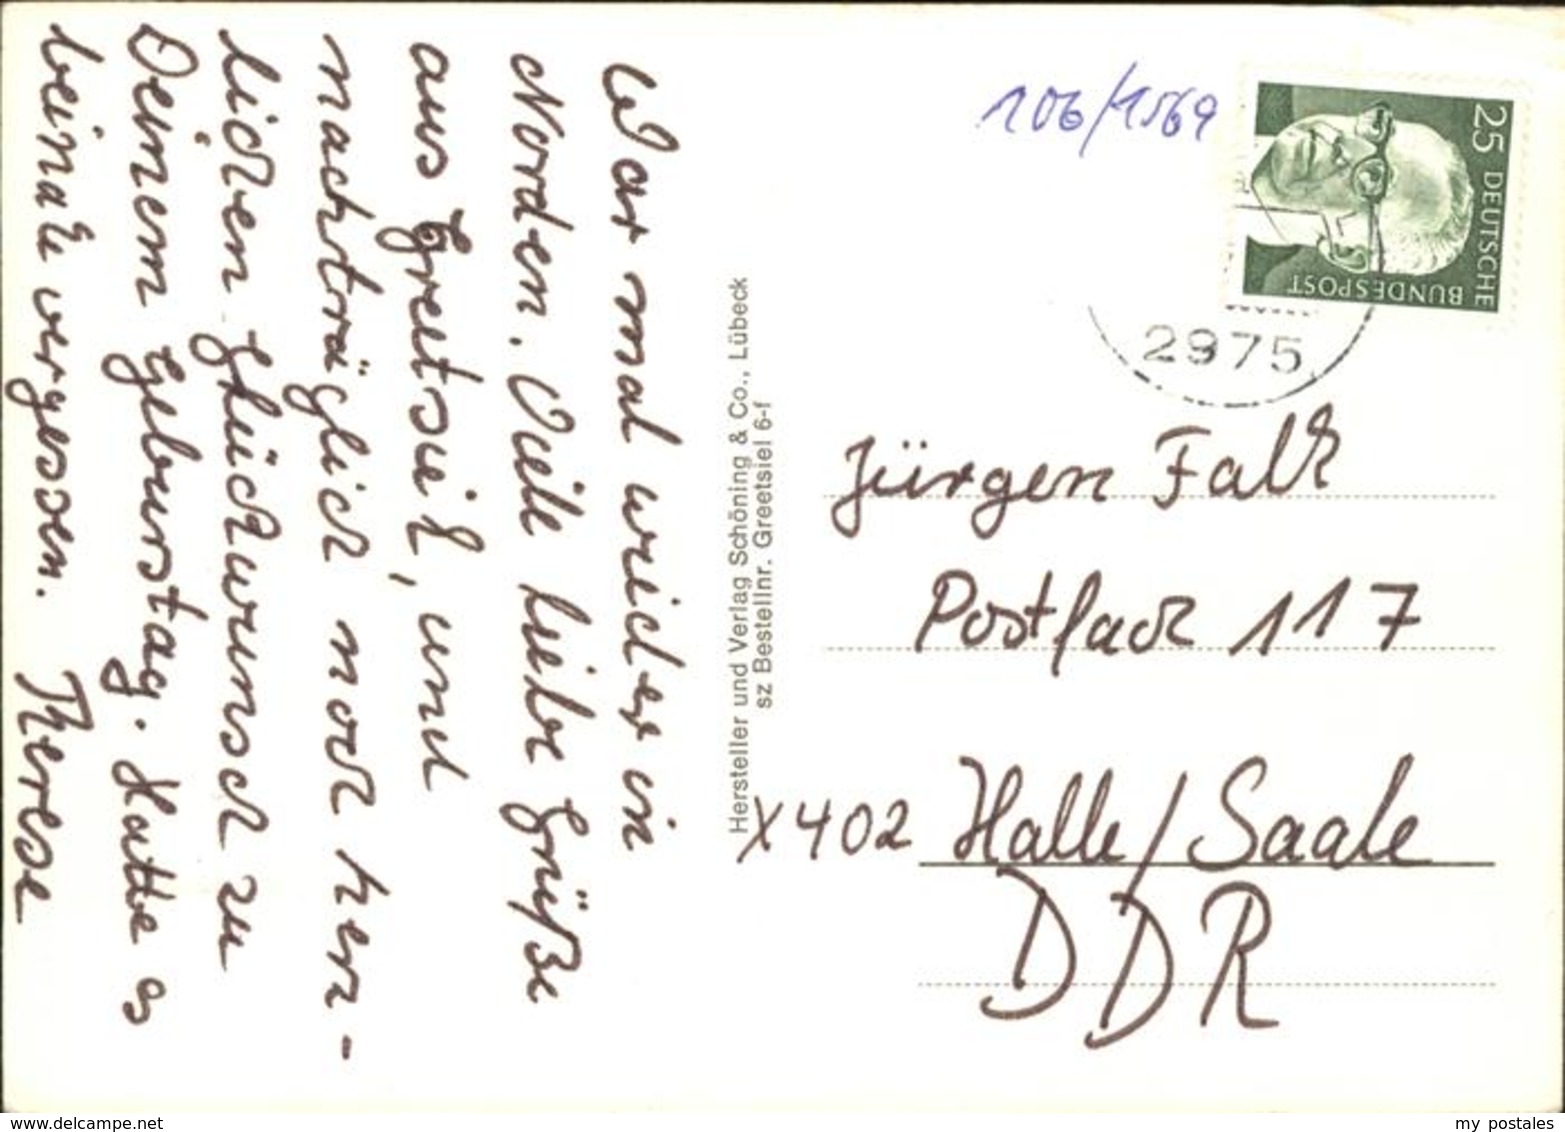 War mal wieder in
Norden. Viele liebe Grüße
aus Greetsiel, und
nachträglich noch herz-
lichen Glückwunsch zu
Deinem Geburstag. Hatte es
beinahe vergessen. Therese
Hersteller und Verlag Schöning & Co., Lübeck
sz Bestellnr. Greetsiel 6-f
106/1569
25 DEUTSCHE
BUNDESPOST
2975
Jürgen Falk
Postfach 117
X402 Halle/Saale
DDR
www.delcampe.net
my_postales